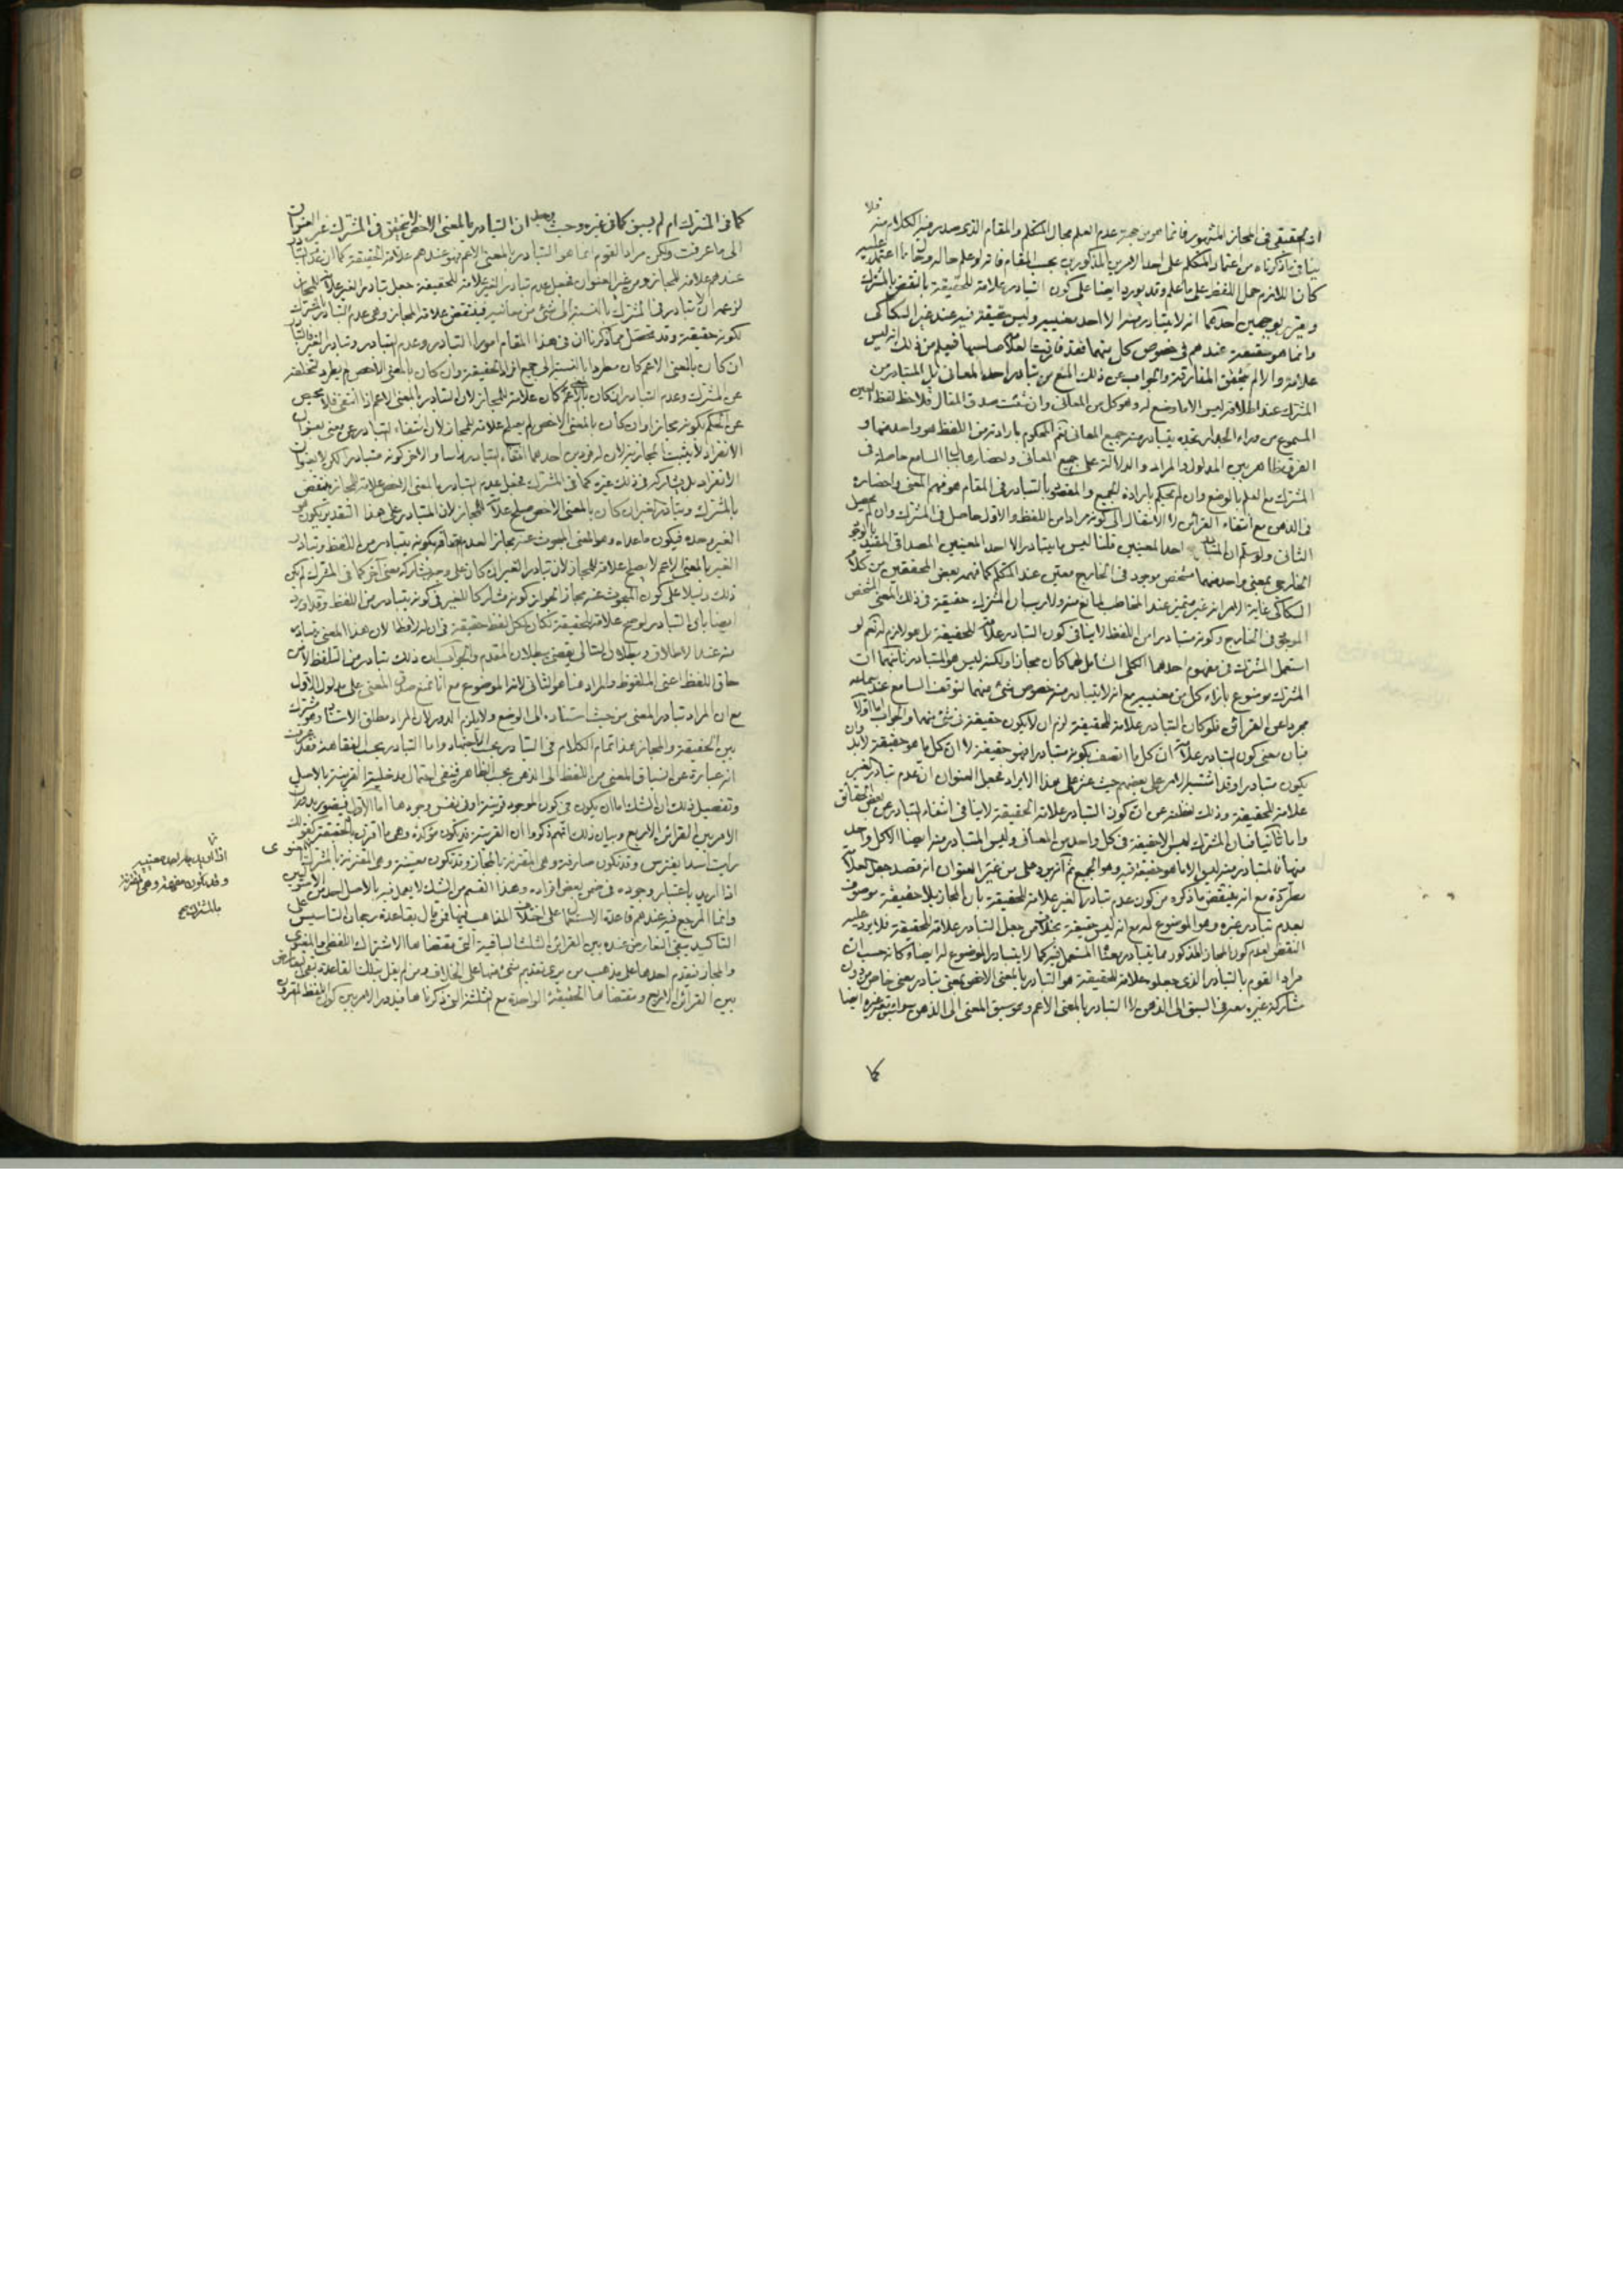 ان حقيقي في المجاز المشهور فانما هو من جهة عدم العلم بحال المتكلم والمقام الذي صدر فيه الكلام منه فلا
ينافي ما ذكرناه من اعتماد المتكلم على احد الامرين المذكورين بحسب المقام فانه لو علم حاله وانه اعتمد عليه
كان اللازم حمل اللفظ على ما علم وقد يورد ايضا على كون التبادر علامة للحقيقة بالنقض بالمشترك
ويقرر بوجهين احدهما انه لا يتبادر منه الا احد معنييه وليس حقيقة فيه عند غير السكاكي
وانما هو حقيقة عندهم في خصوص كل منهما فقد فارقت العلامة صاحبها فيعلم من ذلك انه ليس
علامة والا لم يتحقق المفارقة والجواب عن ذلك المنع من تبادر احد المعاني بل المتبادر من
المشترك عند اطلاقه ليس الا ما وضع له وهو كل من المعاني وان شئت صدق المقال فلاحظ لفظ العين
المسموع من وراء الجدار تجده يتبادر منه جميع المعاني نعم المحكوم بارادته من اللفظ هو واحد منها و
الفرق ظاهر بين المدلول والمراد والدلالة على جميع المعاني واحضارها ببال السامع حاصلة في
المشترك مع العلم بالوضع وان لم يحكم بارادة الجميع والمقصود بالتبادر في المقام هو فهم المعنى واحضاره
في الذهن مع انتفاء القرائن لا الانتقال الى كونه مرادا من اللفظ والاول حاصل في المشترك وان لم يحصل
الثاني ولو سلم ان المتبادر احد المعنيين قلنا ليس ما يتبادر الا احد المعنيين المصداقي المقيد بالوجود
الخارجي بمعنى واحد منهما مشخص موجود في الخارج معين عند المتكلم كما فهمه بعض المحققين من كلام
السكاكي غاية الامر انه غير متميز عند المخاطب لمانع منه ولا ريب ان المشترك حقيقة في ذلك المعنى المشخص
الموجود في الخارج وكونه متبادرا من اللفظ لا ينافي كون التبادر علامة للحقيقة بل هو لازم له نعم لو
استعمل المشترك في مفهوم احدهما الكلي الشامل لهما كان مجازا ولكنه ليس هو المتبادر ثانيهما ان
المشترك موضوع بازاء كل من معنييه مع انه لا يتبادر منه خصوص شئ منهما لتوقف السامع عند سماعه
مجردا عن القرائن فلو كان التبادر علامة للحقيقة لزم ان لا يكون حقيقة في شئ منهما والجواب اما اولا
فبان معنى كون التبادر علامة ان كل ما اتصف بكونه متبادرا فهو حقيقة لا ان كل ما هو حقيقة لابد وان
يكون متبادرا وقد اشتبه الامر على بعضهم حيث عثر على هذا الايراد فجعل العنوان ان عدم تبادر الغير
علامة للحقيقة وذلك لغفلته عن ان كون التبادر علامة الحقيقة لا ينافي انتفاء التبادر عن بعض الحقائق
واما ثانيا فبان المشترك ليس الا حقيقة في كل واحد من المعاني وليس المتبادر منه ايضا الا كل واحد
منها فالمتبادر منه ليس الا ما هو حقيقة فيه وهو الجميع ثم انه يرد على من غير العنوان انه قصد جعل العلامة
مطردة مع انه ينتقض ما ذكره من كون عدم تبادر الغير علامة للحقيقة بان المجاز بلا حقيقة موصوف
بعدم تبادر غيره وهو الموضوع له مع انه ليس حقيقة بخلاف من جعل التبادر علامة للحقيقة فلا يرد عليه
النقض لعدم كون المجاز المذكور مما يتبادر معناه المستعمل فيه كما لا يتبادر الموضوع له ايضا وكانه حسب ان
مراد القوم بالتبادر الذي جعلوه علامة للحقيقة هو التبادر بالمعنى الاخص بمعنى تبادر معنى خاص من دون
مشاركة غيره معه في السبق الى الذهن لا التبادر بالمعنى الاعم وهو سبق المعنى الى الذهن سواء سبق غيره ايضا
كما
كما في المشترك ام لم يسبق كما في غيره وحيث وجد ان التبادر بالمعنى الاخص لا يتحقق في المشترك غير العنوان
الى ما عرفت ولكن مراد القوم انما هو التبادر بالمعنى الاعم فهو عندهم علامة الحقيقة كما ان عدم التبادر
عندهم علامة للمجاز ومن غير العنوان فجعل عدم تبادر الغير علامة للحقيقة جعل تبادر الغير علامة للمجاز
لزعمه ان لا تبادر في المشترك بالنسبة الى شئ من معانيه فينتقض علامة المجاز وهي عدم التبادر بالمشترك
لكونه حقيقة وقد تحصل مما ذكرنا ان في هذا المقام امورا التبادر وعدم التبادر وتبادر الغير فالتبادر
ان كان بالمعنى الاعم كان مطردا بالنسبة الى جميع افراد الحقيقة وان كان بالمعنى الاخص لم يطرد لتخلفه
عن المشترك وعدم التبادر ان كان بالمعنى الاعم كان علامة للمجاز لان التبادر بالمعنى الاعم اذا انتفى فلا محيص
عن الحكم بكونه مجازا وان كان بالمعنى الاخص لم يصلح علامة للمجاز لان انتفاء التبادر عن معنى بعنوان
الانفراد لا يثبت المجازية لان له فردين احدهما انتفاء التبادر راسا والاخر كونه متبادرا لكن لا بعنوان
الانفراد بل يشاركه في ذلك غيره كما في المشترك فجعل عدم التبادر بالمعنى الاخص علامة للمجاز ينتقض
بالمشترك وتبادر الغير ان كان بالمعنى الاخص صلح علامة للمجاز لان المتبادر على هذا التقدير يكون هو
الغير وحده فيكون ما عداه وهو المعنى المبحوث عنه مجازا لعدم اتصافه بكونه يتبادر من اللفظ وتبادر
الغير بالمعنى الاعم لا يصلح علامة للمجاز لان تبادر الغير ان كان على وجه يشاركه معنى آخر كما في المشترك لم يكن
ذلك دليلا على كون المبحوث عنه مجازا لجواز كونه مشاركا للغير في كونه يتبادر من اللفظ وقد اورد
ايضا بان التبادر لو صح علامة للحقيقة لكان لكل لفظ حقيقة في ان له لافظا لان هذا المعنى يتبادر
منه عند الاطلاق وبطلان التالي يقضي ببطلان المقدم والجواب ان ذلك يتبادر من التلفظ لا من
حاق اللفظ اعني الملفوظ والمراد هنا هو الثاني لانه الموضوع مع انا نمنع صدق المعنى على مدلول الاول
مع ان المراد تبادر المعنى من حيث استناده الى الوضع ولا يلزم الدور لان المراد مطلق الاستناد وهو مشترك
بين الحقيقة والمجاز هذا تمام الكلام في التبادر بحسب الاجتهاد واما التبادر بحسب الفقاهة فقد عرفت
انه عبارة عن انسباق المعنى من اللفظ الى الذهن بحسب الظاهر فينفى احتمال مدخلية القرينة بالاصل
وتفصيل ذلك ان الشك اما ان يكون في كون الموجود قرينة او في نفس وجودها اما الاول فيتصور بدوران
الامر بين القرائن الاربع وبيان ذلك انهم ذكروا ان القرينة قد تكون مؤكدة وهي ما اقترن بالحقيقة كقولك
رايت اسدا يفترس وقد تكون صارفة وهي المقترنة بالمجاز وقد تكون معينة وهي المقترنة بالمشترك المعنوى
اذا اريد باعتبار وجوده في ضمن بعض افراده وهذا القسم من الشك لا يعمل فيه بالاصل
وانما المرجع فيه عندهم قاعدة الاستعمال على اختلاف المذاهب فيها فمن قال بقاعدة رجحان التاسيس على
التاكيد يبقى التعارض عنده بين القرائن الثلث الباقية التي مقتضاها الاشتراك اللفظي والمعنوي
والمجاز فيقدم احدها على مذهب من يرى تقديم شئ منها على الخلاف ومن لم يقل بتلك القاعدة يبقى التعارض
بين القرائن الاربع ومقتضاها الحقيقة الواحدة مع الثلثة التي ذكرناها فيدور الامر بين كون اللفظ المقرون
اذا اريد به احد معنييه
وقد تكون مفهمة وهي المقترنة
بالمشترك صح